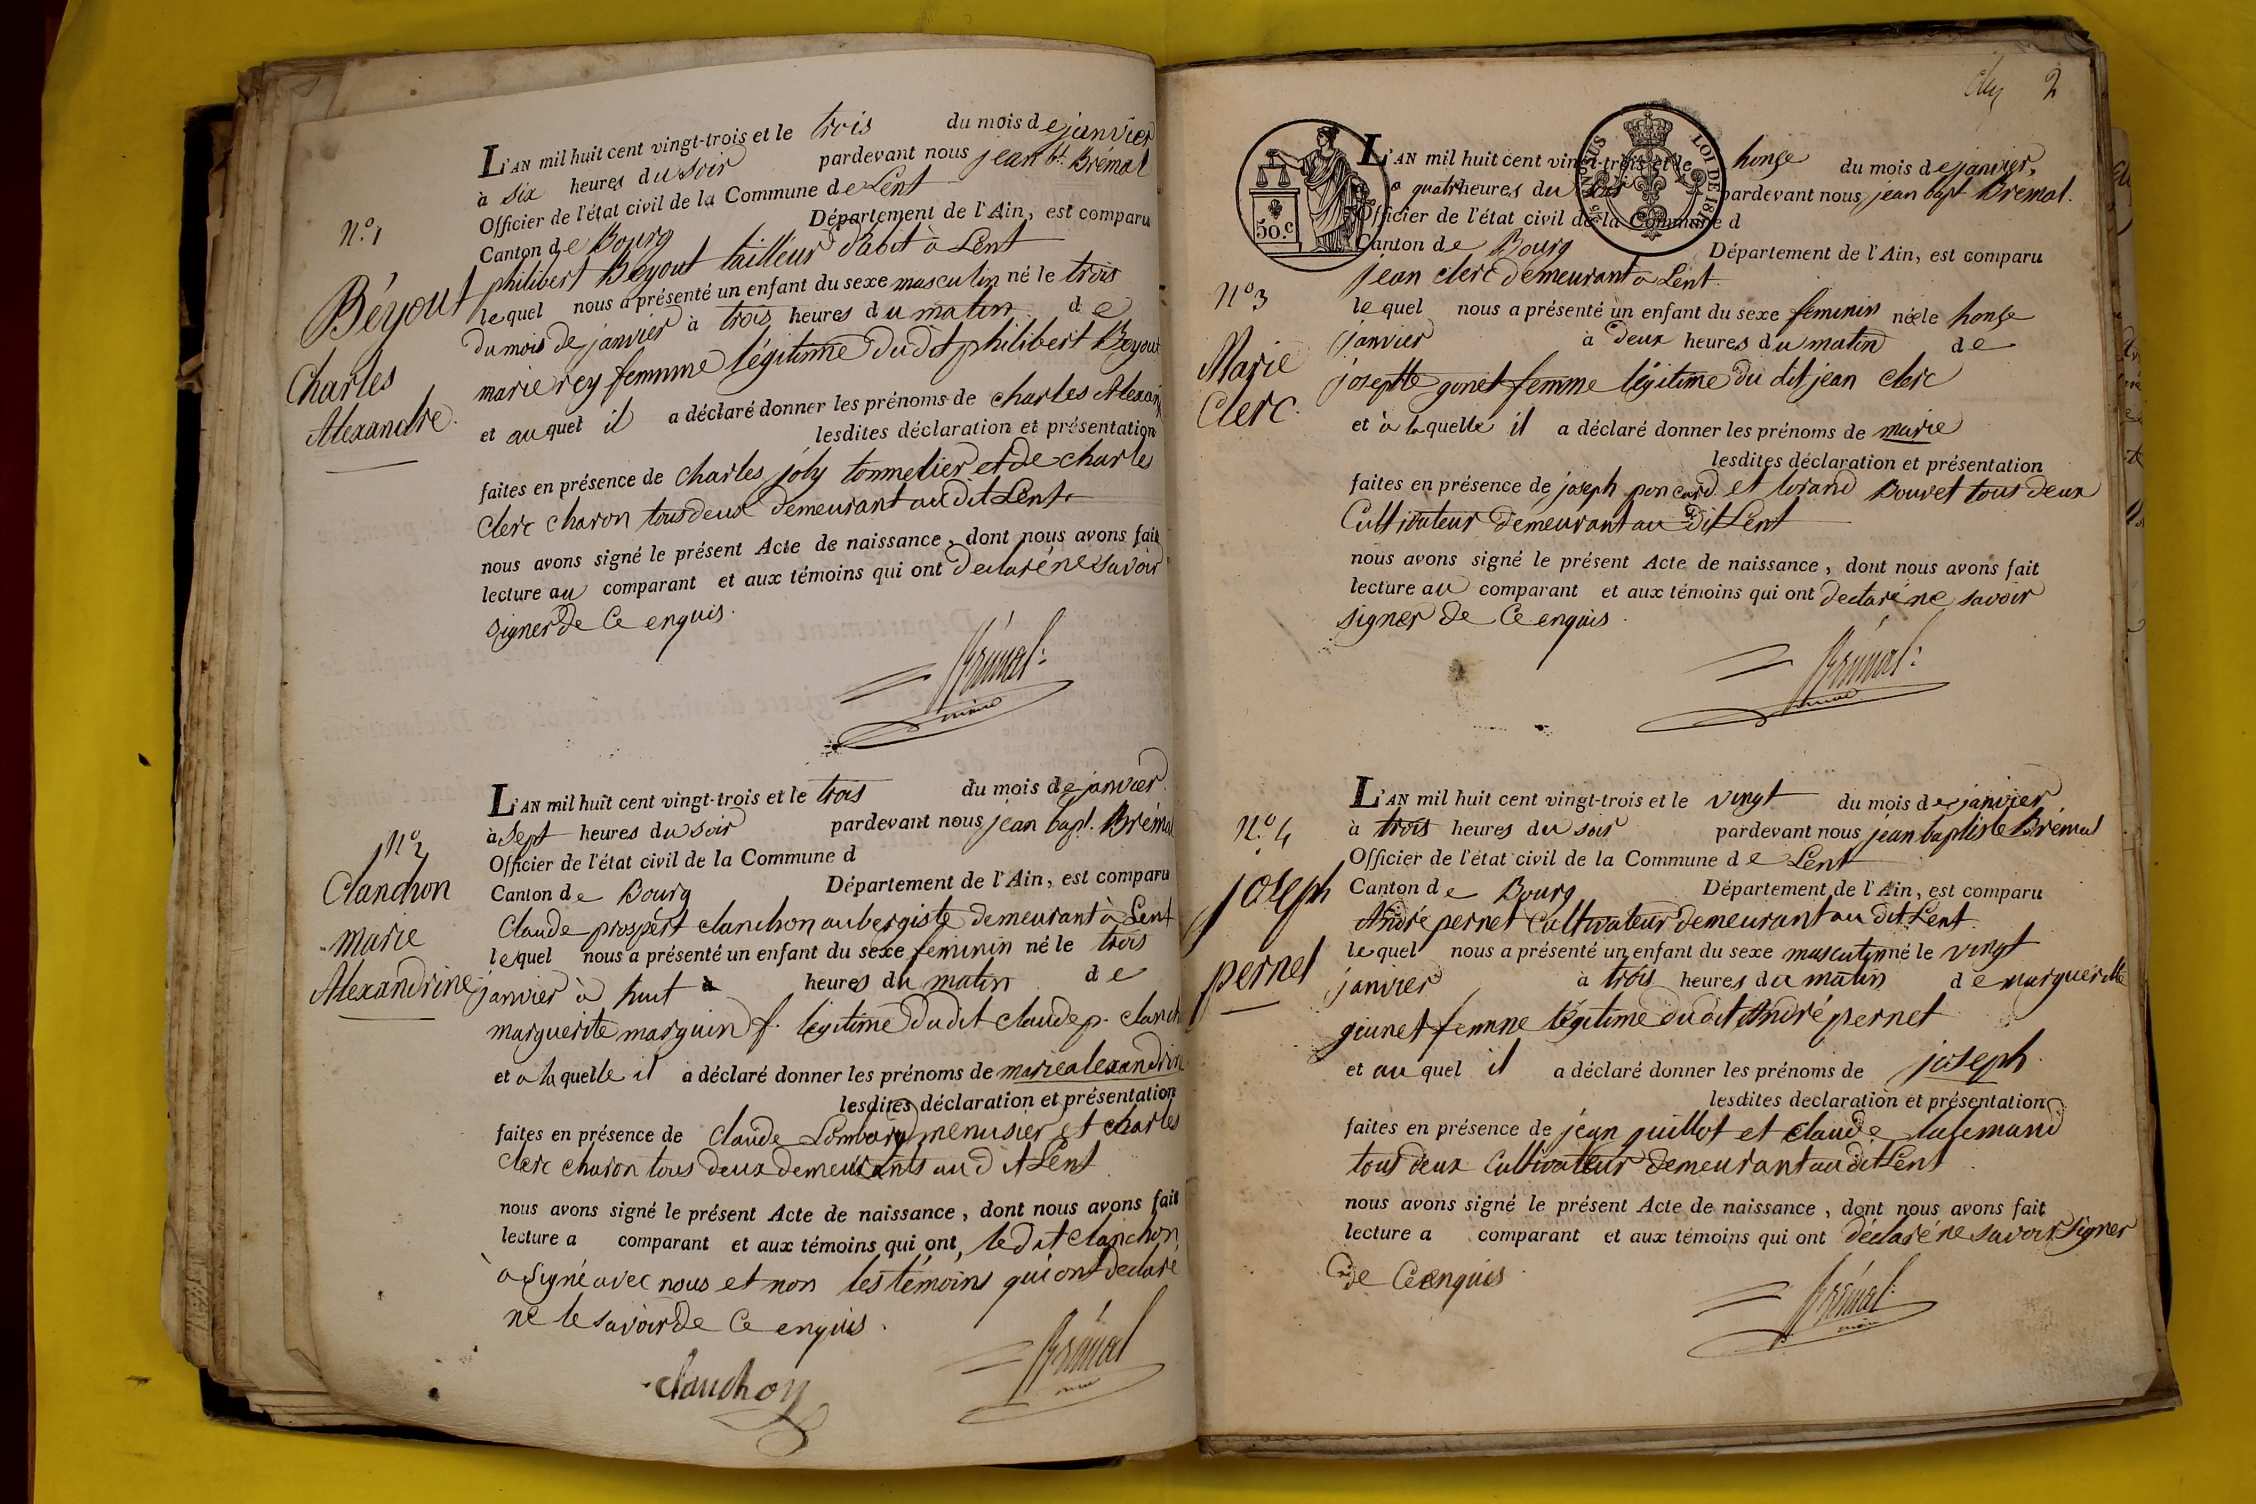 L'AN mil huit cent vingt-trois et le trois du mois de janvier
à six heures du soir pardevant nous jean bt. Brémal
Officier de l'état civil de la Commune de Lent
Canton de Bourg Département de l'Ain, est comparu
philibert Béyout tailleur d'abit à Lent
lequel nous a présenté un enfant du sexe masculin né le trois
du mois de janvier à trois heures du matin de
marie rey femme légitime du dit philibert Beyout
et auquel il a déclaré donner les prénoms de charles Alexan
lesdites déclaration et présentation
faites en présence de charles joly tonnelier et de charles
clerc charon tous deux demeurant au dit Lent
nous avons signé le présent Acte de naissance, dont nous avons fait
lecture au comparant et aux témoins qui ont declaré ne savoir
signer de ce enquis.
Brémal
maire
N.o 1
Béyout
Charles
Alexandre.
L'AN mil huit cent vingt-trois et le trois du mois de janvier
à sept heures du soir pardevant nous jean bapt. Brémal
Officier de l'état civil de la Commune d
Canton de Bourg Département de l'Ain, est comparu
Claude prospért clanchon aubergiste demeurant à Lent
lequel nous a présenté un enfant du sexe feminin né le trois
janvier à huit heures du matin de
marguerite marguin f. légitime du dit claude p. clanch
et a laquelle il a déclaré donner les prénoms de marie alexandrine
lesdites déclaration et présentation
faites en présence de claude Lombard menusier et charles
clerc charon tous deux demeurants au dit Lent
nous avons signé le présent Acte de naissance, dont nous avons fait
lecture a comparant et aux témoins qui ont, le dit clanchon
a signé avec nous et non les témoins qui ont declaré
ne le savoir de ce enquis.
clanchon
Brémal
maire
N.o 2
Clanchon
marie
Alexandrine
2
50.c
LOI DE 181
L'AN mil huit cent vingt-trois et le honze du mois de janvier,
a quatre heures du soir pardevant nous jean bapt Brémal.
Officier de l'état civil de la Commune d
Canton de Bourg Département de l'Ain, est comparu
jean clerc demeurant à Lent
lequel nous a présenté un enfant du sexe feminin née le honze
janvier à deux heures du matin de
josephte gonet femme légitime du dit jean clerc
et à laquelle il a déclaré donner les prénoms de marie
lesdites déclaration et présentation
faites en présence de joseph poncard et lorand Bouvet tous deux
Cultivateur demeurant au dit Lent
nous avons signé le présent Acte de naissance, dont nous avons fait
lecture au comparant et aux témoins qui ont declaré ne savoir
signer de ce enquis.
Brémal
maire
N.o 3
Marie
Clerc.
L'AN mil huit cent vingt-trois et le vingt du mois de janvier
à trois heures du soir pardevant nous jean baptiste Brémal
Officier de l'état civil de la Commune de Lent
Canton de Bourg Département de l'Ain, est comparu
André pernet Cultivateur demeurant au dit Lent
lequel nous a présenté un enfant du sexe masculin né le vingt
janvier à trois heures du matin de marguerite
femme légitime du dit André pernet
et auquel il a déclaré donner les prénoms de joseph
lesdites declaration et présentation
faites en présence de jean guillot et claude lalemand
tous deux Cultivateur demeurant au dit Lent
nous avons signé le présent Acte de naissance, dont nous avons fait
lecture a comparant et aux témoins qui ont déclaré ne savoir signer
de ce enquis
Brémal
maire
N.o 4
joseph
pernet